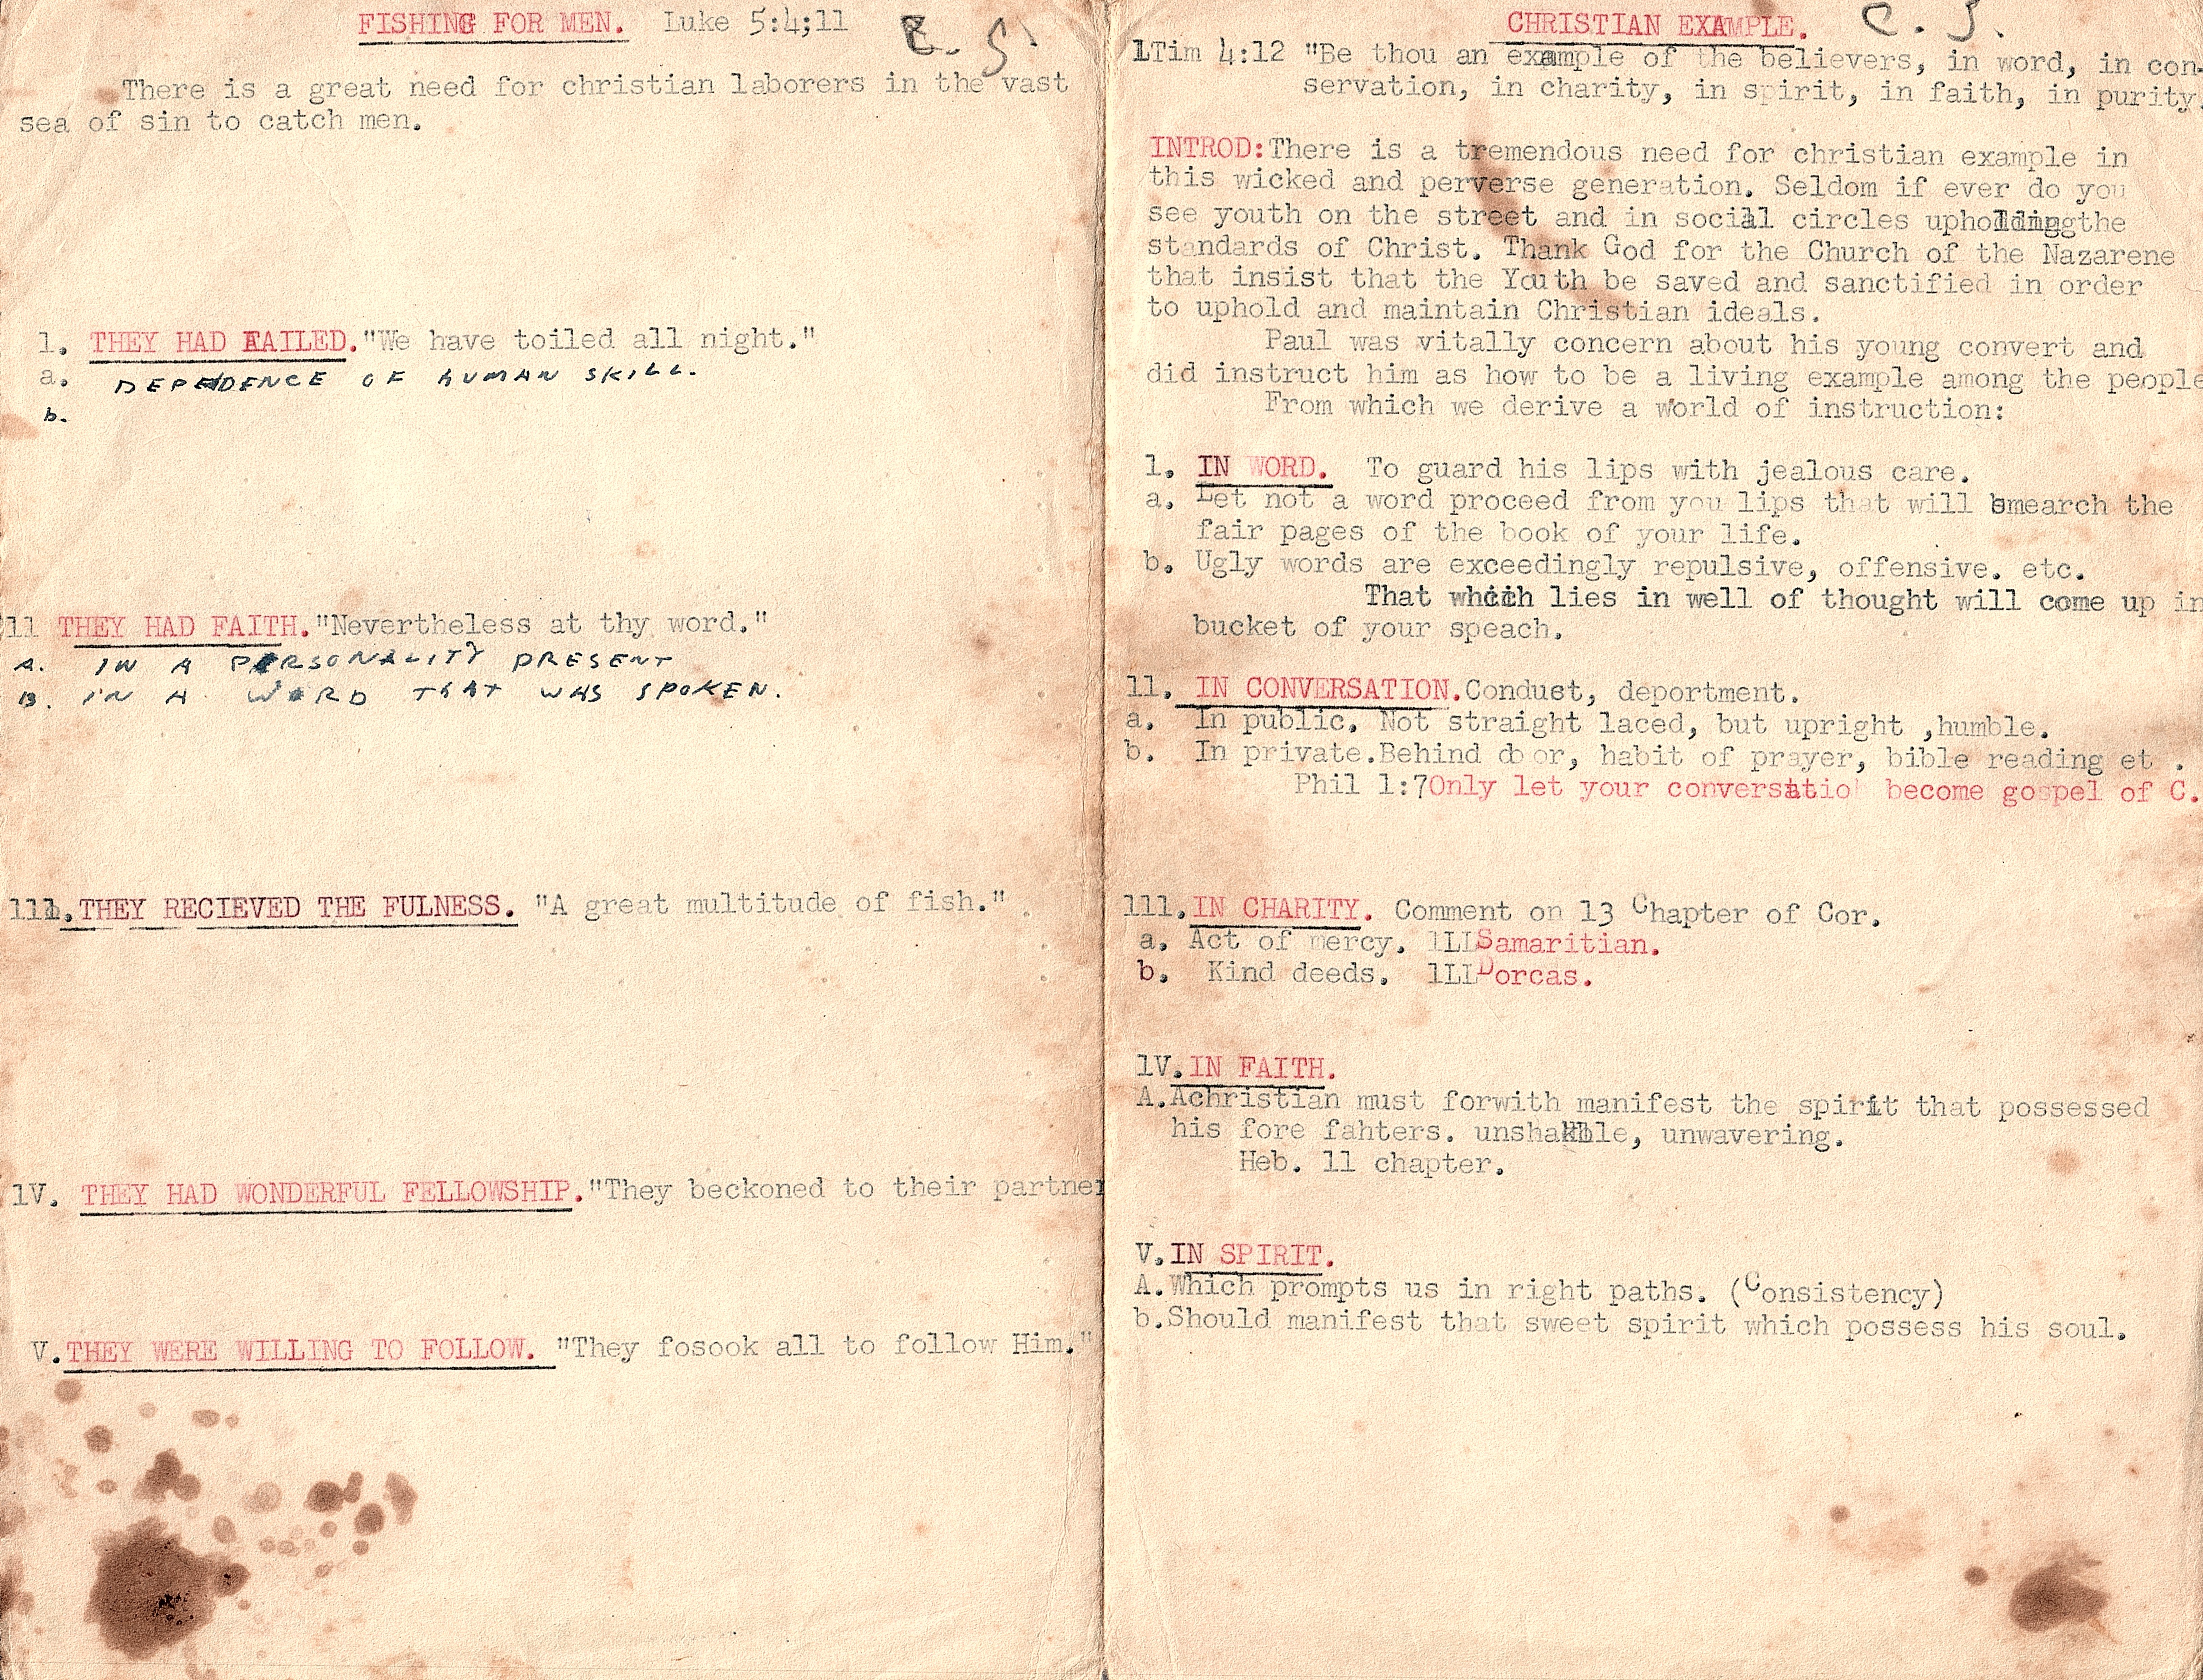 FISHING FOR MEN. Luke 5:4;11
There is a great need for christian laborers in the vast
sea of sin to catch men.
1. THEY HAD FAILED."We have toiled all night."
a. DEPENDENCE OF HUMAN SKILL.
b.
11 THEY HAD FAITH."Nevertheless at thy word."
A. IN A PERSONALITY PRESENT
B. IN A WORD THAT WAS SPOKEN.
111.THEY RECIEVED THE FULNESS. "A great multitude of fish."
1V. THEY HAD WONDERFUL FELLOWSHIP."They beckoned to their partner
V.THEY WERE WILLING TO FOLLOW. "They fosook all to follow Him."
CHRISTIAN EXAMPLE. C. S.
1Tim 4:12 "Be thou an example of the believers, in word, in con-
servation, in charity, in spirit, in faith, in purity.
INTROD:There is a tremendous need for christian example in
this wicked and perverse generation. Seldom if ever do you
see youth on the street and in social circles upholding the
standards of Christ. Thank God for the Church of the Nazarene
that insist that the Youth be saved and sanctified in order
to uphold and maintain Christian ideals.
Paul was vitally concern about his young convert and
did instruct him as how to be a living example among the people
From which we derive a world of instruction:
1. IN WORD. To guard his lips with jealous care.
a. Let not a word proceed from you lips that will smearch the
fair pages of the book of your life.
b. Ugly words are exceedingly repulsive, offensive. etc.
That which lies in well of thought will come up in
bucket of your speach.
11. IN CONVERSATION.Conduct, deportment.
a. In public. Not straight laced, but upright ,humble.
b. In private.Behind door, habit of prayer, bible reading et .
Phil 1:7Only let your conversatio become gospel of C.
111.IN CHARITY. Comment on 13 Chapter of Cor.
a. Act of mercy. 1LLSamaritian.
b. Kind deeds. 1LLDorcas.
1V.IN FAITH.
A.Achristian must forwith manifest the spirit that possessed
his fore fahters. unshakble, unwavering.
Heb. 11 chapter.
V.IN SPIRIT.
A.Which prompts us in right paths. (Consistency)
b.Should manifest that sweet spirit which possess his soul.